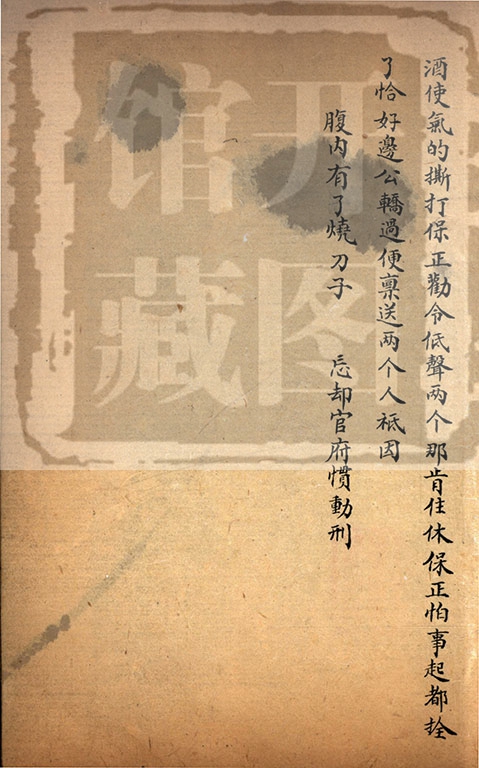 酒使氣的撕打保正勸令低聲两个那肯住休保正怕事起都拴
了恰好邊公轎過便禀送两个人祗因
腹内有了燒刀子 忘却官府慣動刑